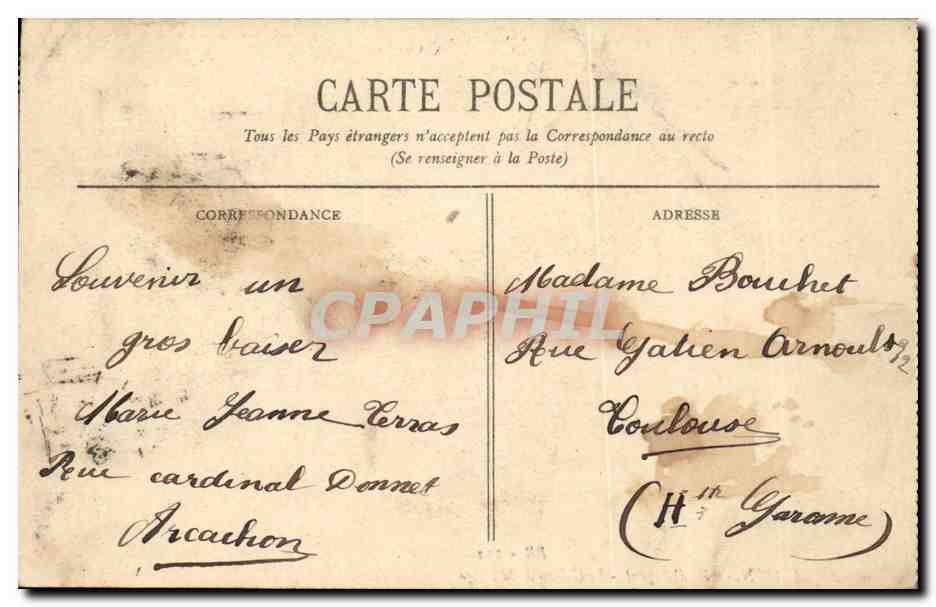 CARTE POSTALE
Tous les Pays étrangers n'acceptent pas la Correspondance au recto
(Se renseigner à la Poste)
CORRESPONDANCE
Souvenir un
gros baiser
Marie Jeanne Terras
Rue cardinal Donnet
Arcachon
ADRESSE
Madame Bouchet
Rue Gatien Arnoult
Toulouse
(Hte Garonne)
CPAPHIL